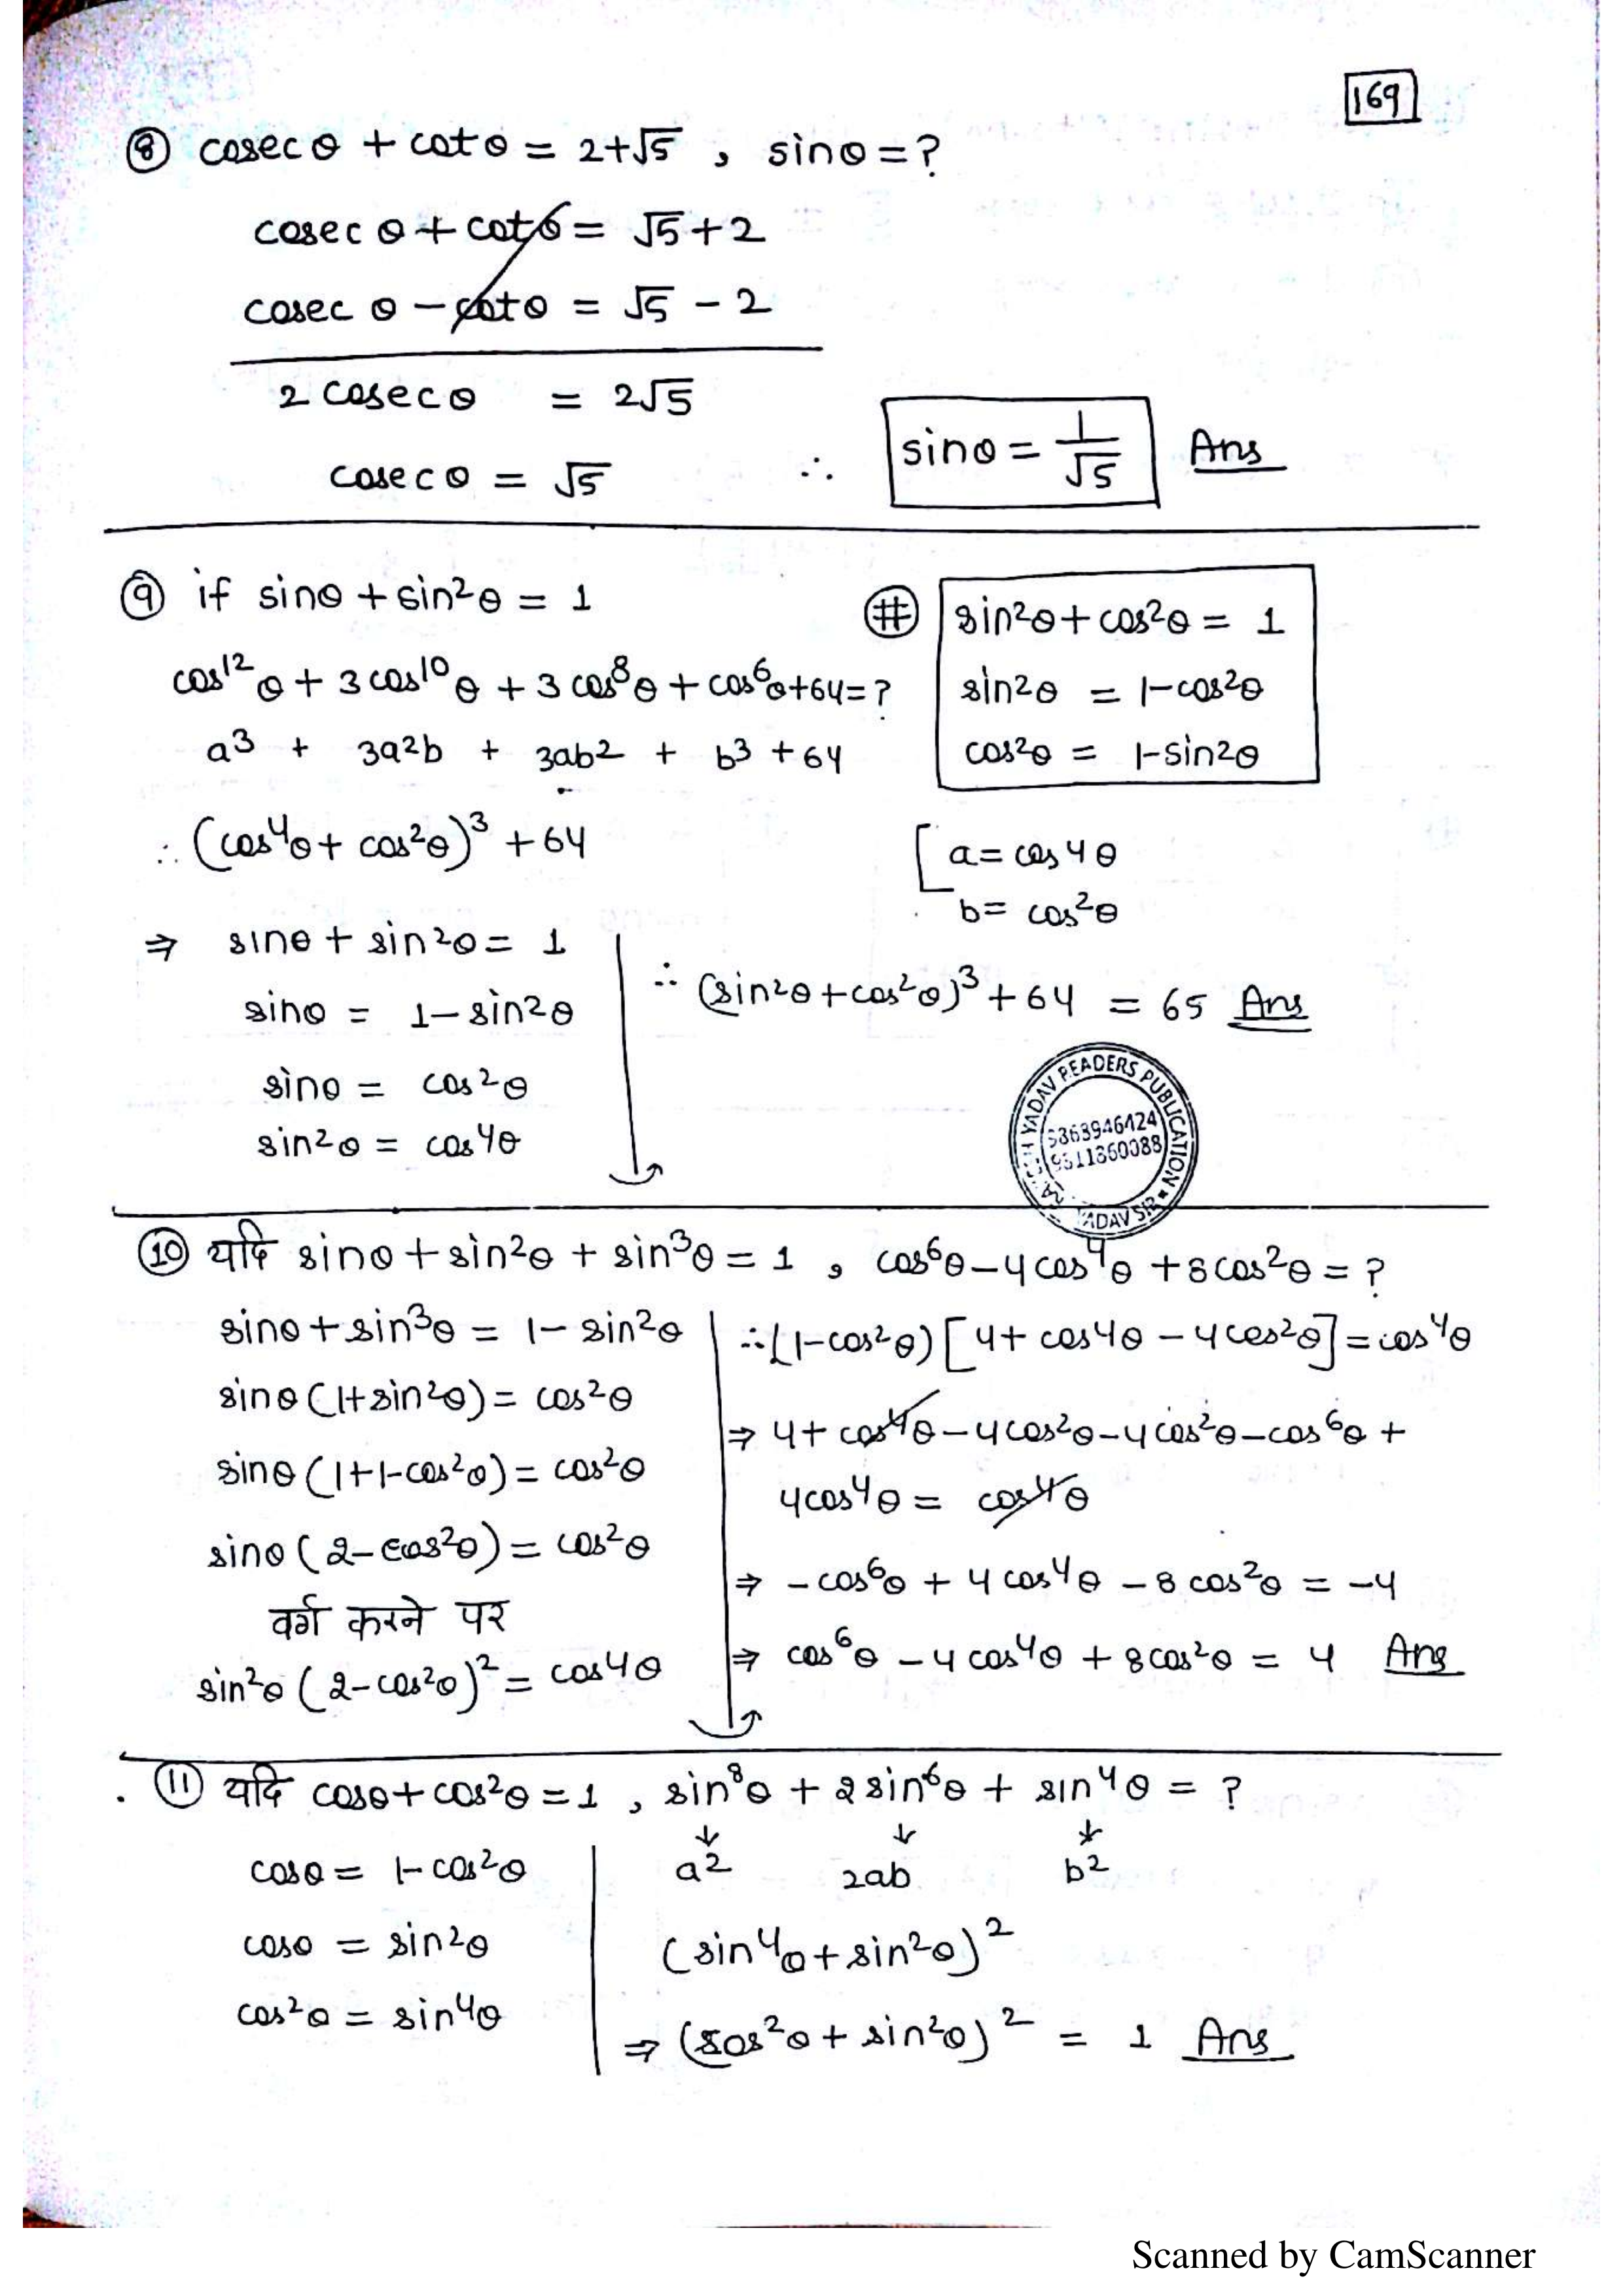 169
⑧ cosec θ + cot θ = 2+√5 , sinθ = ?
cosec θ + cot θ = √5+2
cosec θ − cot θ = √5 − 2
2 cosec θ = 2√5
cosec θ = √5 ∴ sinθ = 1/√5 Ans
⑨ if sinθ + sin²θ = 1
cos¹²θ + 3cos¹⁰θ + 3cos⁸θ + cos⁶θ+64 = ?
a³ + 3a²b + 3ab² + b³ + 64
∴ (cos⁴θ + cos²θ)³ + 64
# sin²θ + cos²θ = 1
sin²θ = 1−cos²θ
cos²θ = 1−sin²θ
[ a = cos⁴θ
b = cos²θ
⇒ sinθ + sin²θ = 1
sinθ = 1 − sin²θ
sinθ = cos²θ
sin²θ = cos⁴θ
∴ (sin²θ + cos²θ)³ + 64 = 65 Ans
YADAV READERS PUBLICATION
YADAV SIR
⑩ यदि sinθ + sin²θ + sin³θ = 1 , cos⁶θ − 4cos⁴θ + 8cos²θ = ?
sinθ + sin³θ = 1 − sin²θ
sinθ (1+sin²θ) = cos²θ
sinθ (1+1−cos²θ) = cos²θ
sinθ (2−cos²θ) = cos²θ
वर्ग करने पर
sin²θ (2−cos²θ)² = cos⁴θ
∴ (1−cos²θ) [4 + cos⁴θ − 4cos²θ] = cos⁴θ
⇒ 4 + cos⁴θ − 4cos²θ − 4cos²θ − cos⁶θ +
4cos⁴θ = cos⁴θ
⇒ −cos⁶θ + 4cos⁴θ − 8cos²θ = −4
⇒ cos⁶θ − 4cos⁴θ + 8cos²θ = 4 Ans
. ⑪ यदि cosθ + cos²θ = 1 , sin⁸θ + 2sin⁶θ + sin⁴θ = ?
↓ ↓ ↓
a² 2ab b²
cosθ = 1−cos²θ
cosθ = sin²θ
cos²θ = sin⁴θ
(sin⁴θ + sin²θ)²
⇒ (cos²θ + sin²θ)² = 1 Ans
Scanned by CamScanner